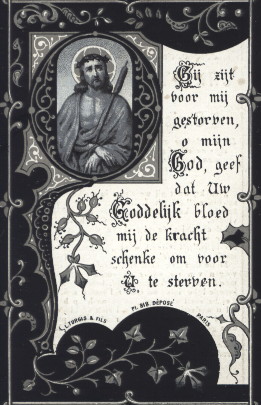 Gij zijt
voor mij
gestorven,
o mijn
God, geef
dat Uw
Goddelijk bloed
mij de kracht
schenke om voor
U te sterven.
L. TURGIS & FILS PL. 518 DÉPOSÉ PARIS